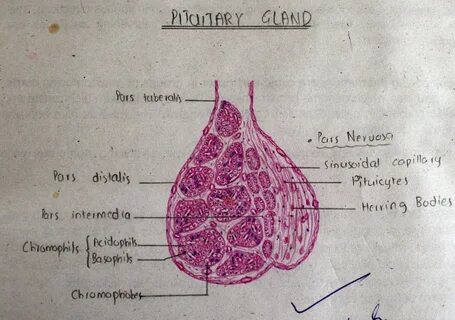 PITUITARY GLAND
Pars tuberalis
• Pars Nervosa
Sinusoidal capillary
Pars distalis
Pituicytes
Pars intermedia
Herring Bodies
Chromophils { Acidophils
Basophils
Chromophobes